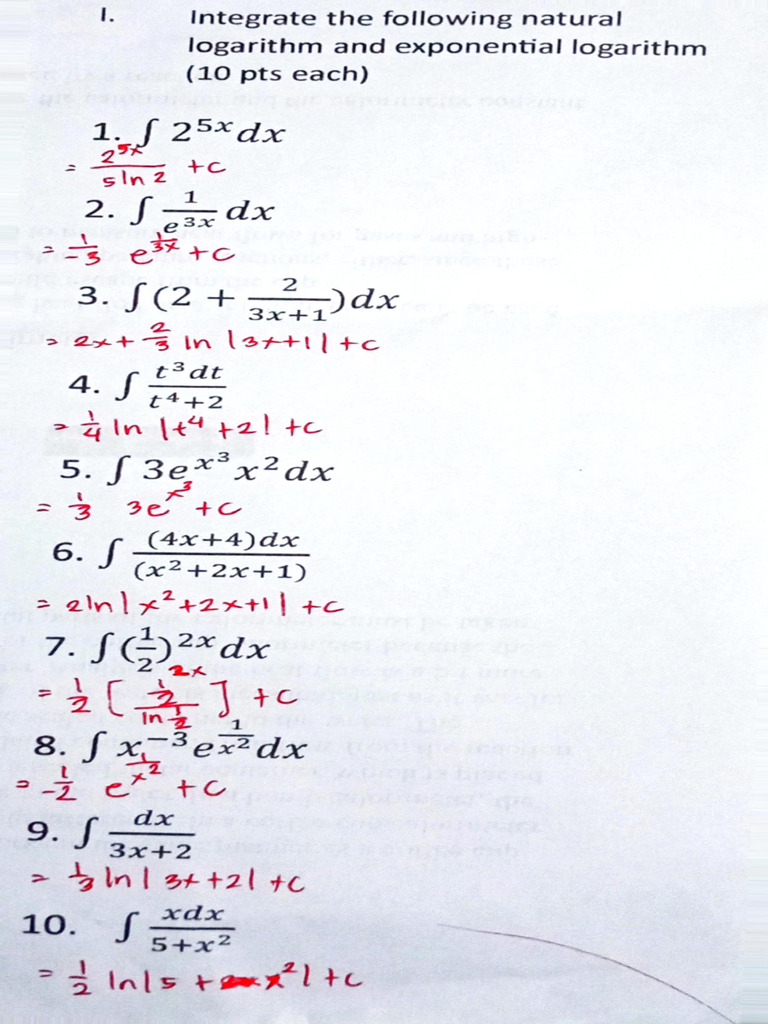 I. Integrate the following natural
logarithm and exponential logarithm
(10 pts each)
1. ∫ 2^{5x} dx
= \frac{2^{5x}}{5 ln 2} + c
2. ∫ \frac{1}{e^{3x}} dx
= -\frac{1}{3} e^{\frac{1}{3x}} + c
3. ∫(2 + \frac{2}{3x+1})dx
= 2x + \frac{2}{3} ln |3x+1| + c
4. ∫ \frac{t^3 dt}{t^4+2}
= \frac{1}{4} ln |t^4 + 2| + c
5. ∫ 3e^{x^3} x^2 dx
= \frac{1}{3} 3e^{x^3} + c
6. ∫ \frac{(4x+4)dx}{(x^2+2x+1)}
= 2ln|x^2+2x+1| + c
7. ∫(\frac{1}{2})^{2x} dx
= \frac{1}{2} [\frac{\frac{1}{2}^{2x}}{ln \frac{1}{2}}] + c
8. ∫ x^{-3} e^{\frac{1}{x^2}} dx
= -\frac{1}{2} e^{\frac{1}{x^2}} + c
9. ∫ \frac{dx}{3x+2}
= \frac{1}{3} ln | 3x + 2| + c
10. ∫ \frac{xdx}{5+x^2}
= \frac{1}{2} ln|5 + x^2| + c